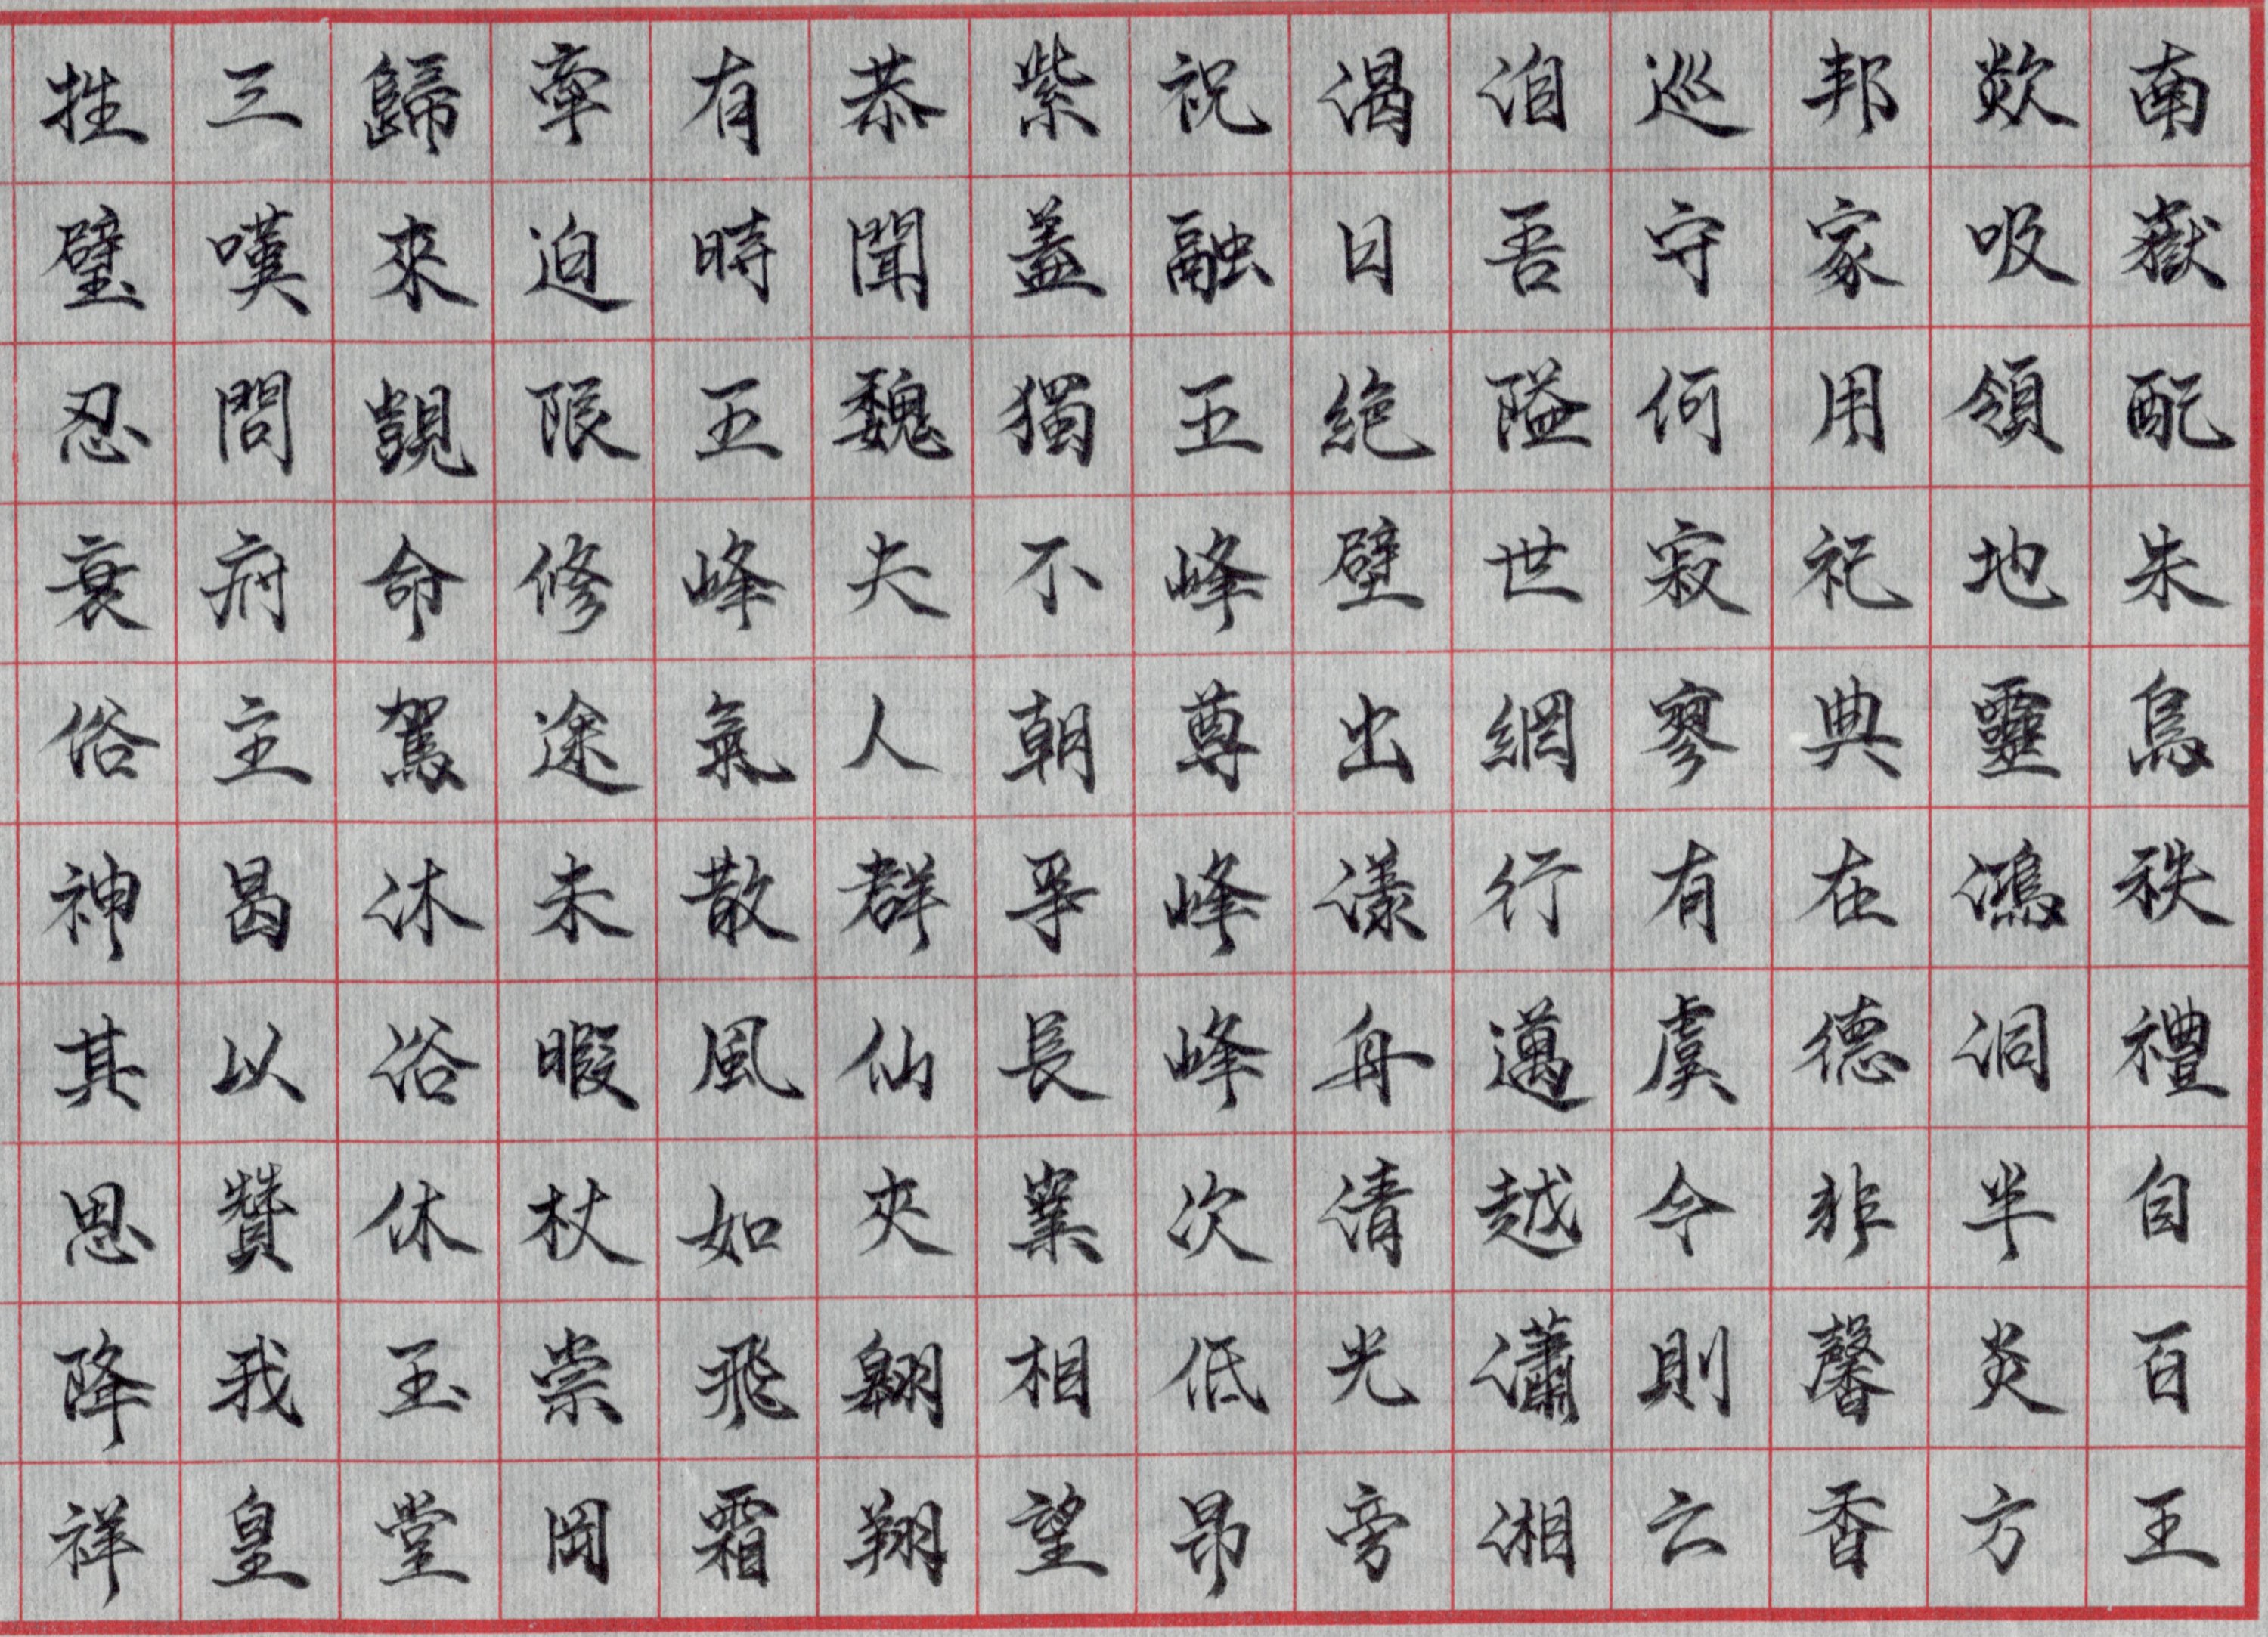 南嶽配朱鳥秩禮自百王
欻吸領地靈鴻洞半炎方
邦家用祀典在德非馨香
巡守何寂寥有虞今則云
洎吾隘世網行邁越瀟湘
渴日絕壁出漾舟清光旁
祝融五峰尊峰峰次低昂
紫盖獨不朝爭長嶪相望
恭聞魏夫人群仙夾翱翔
有時五峰氣散風如飛霜
牽迫限修途未暇杖崇岡
歸來覬命駕沐浴休玉堂
三嘆問府主曷以贊我皇
牲璧忍衰俗神其思降祥